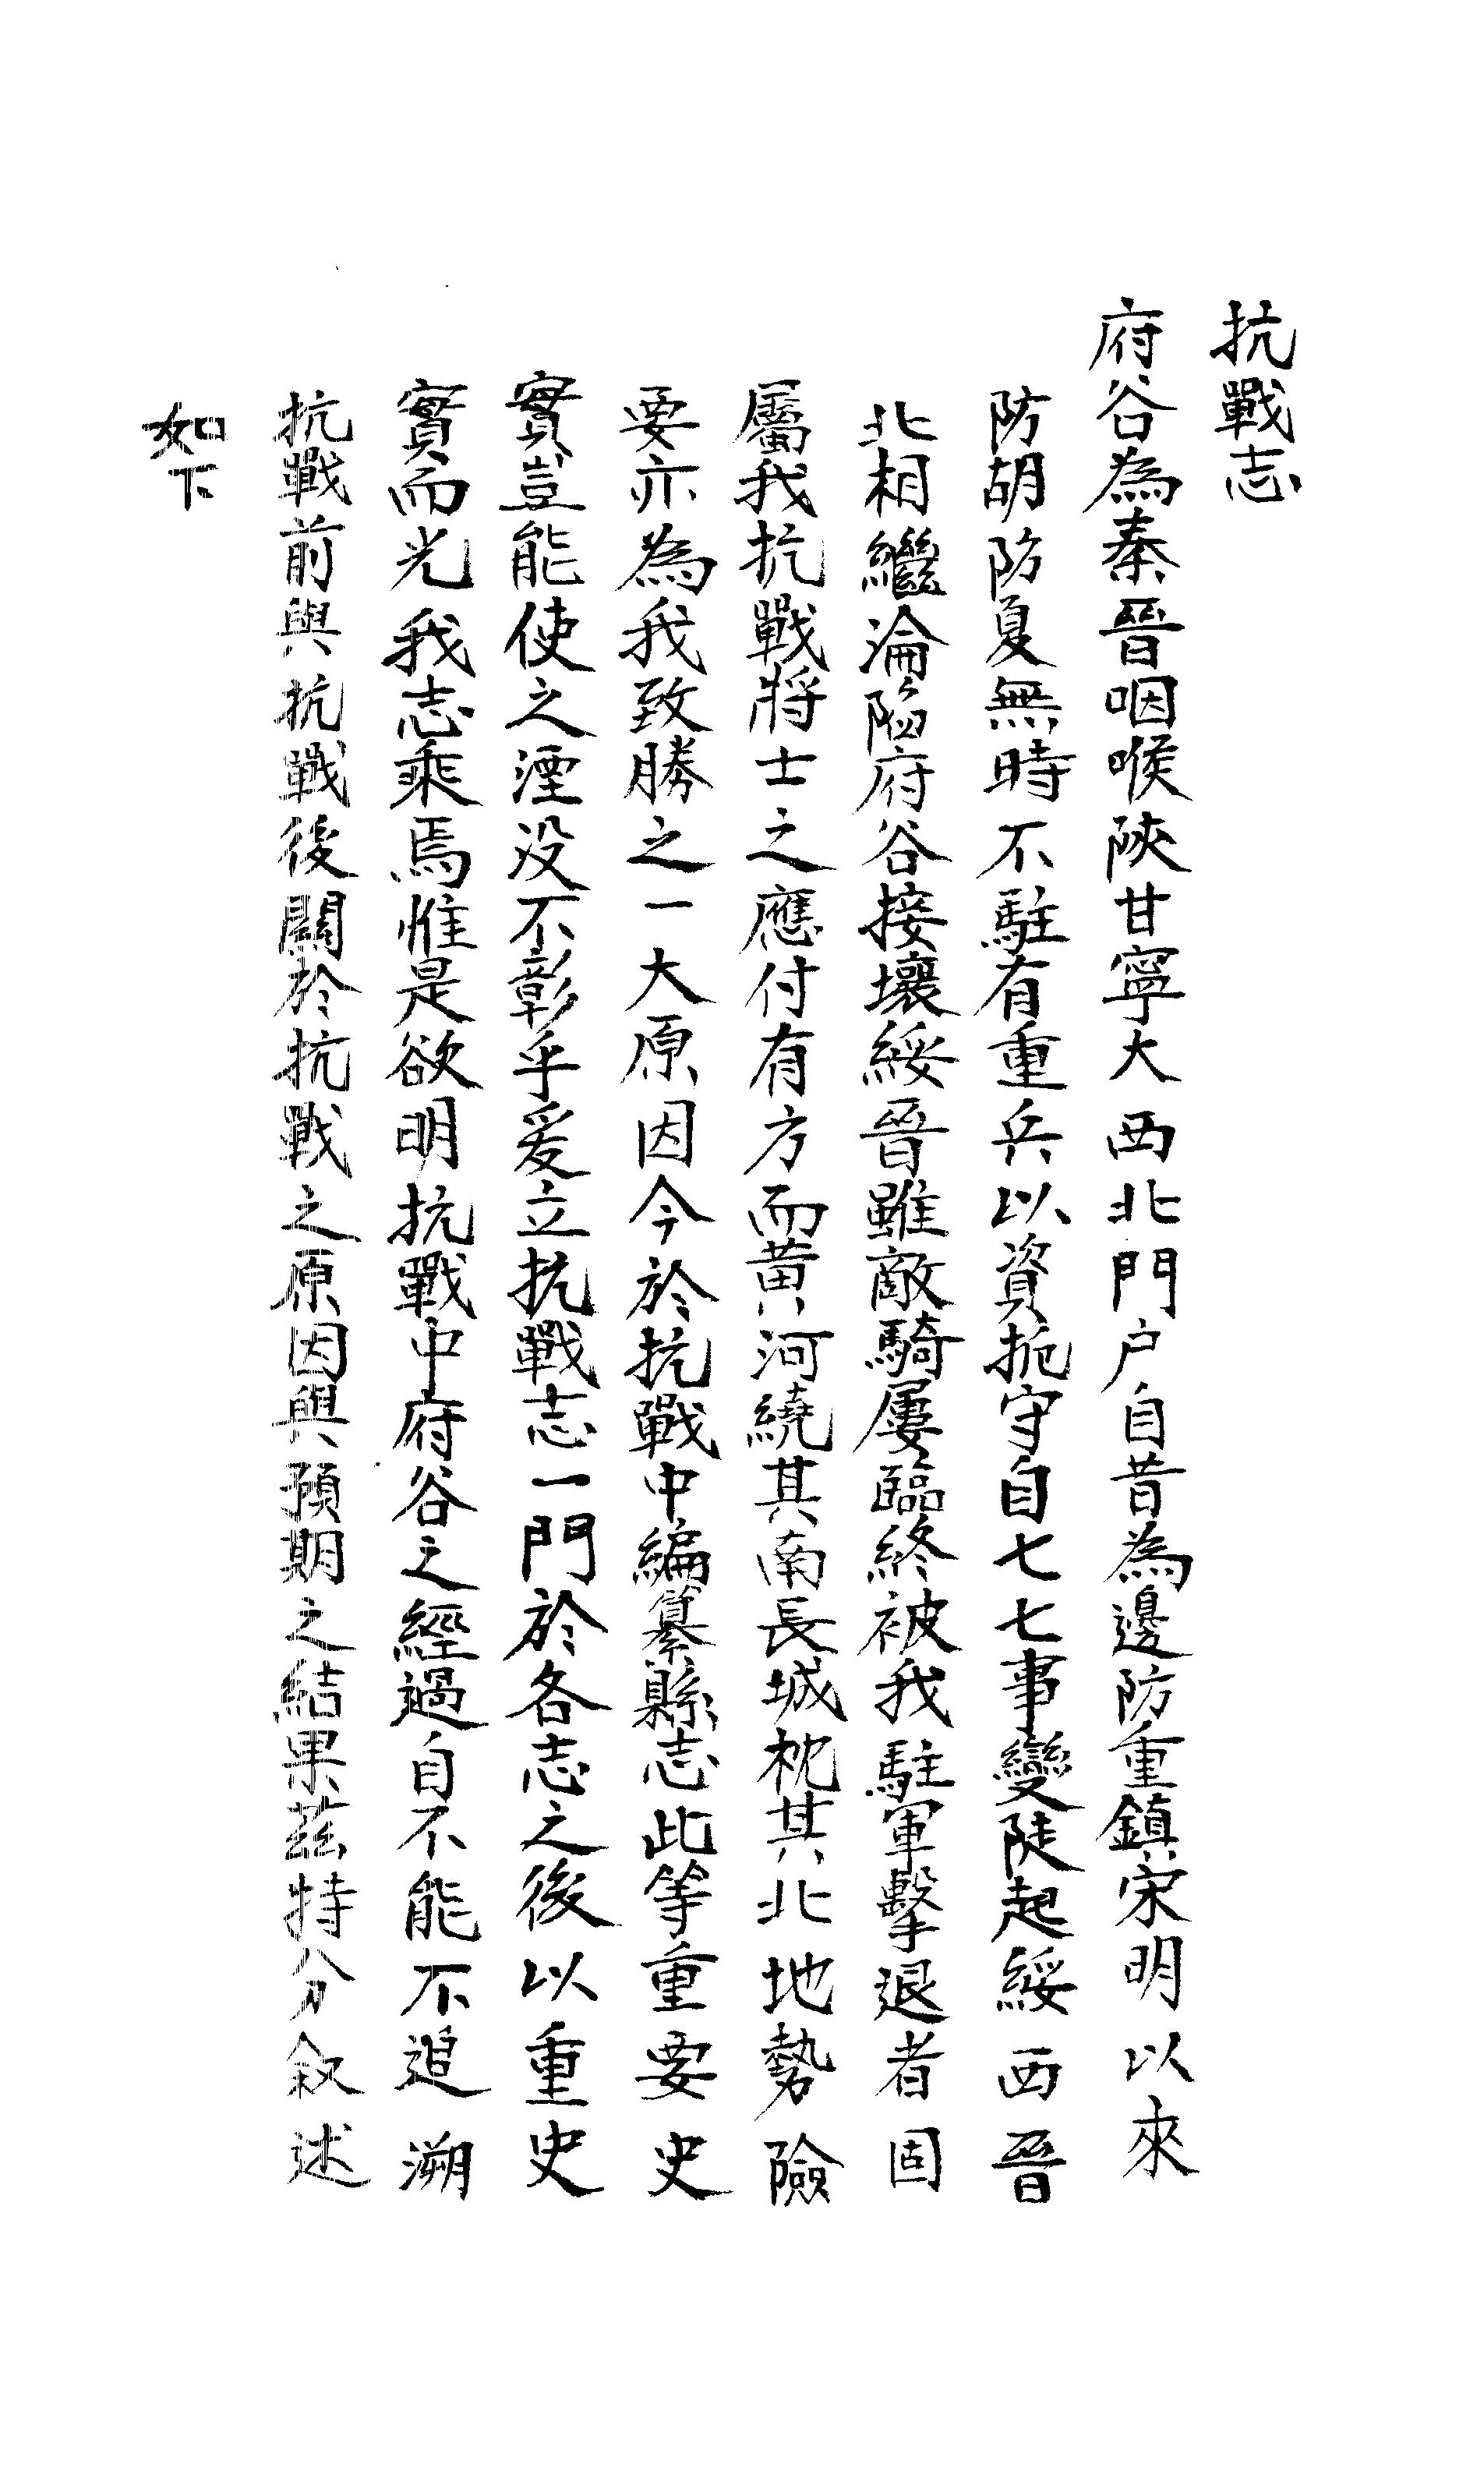 抗戰志
府谷為秦晉咽喉陝甘寧大西北門户自昔為邊防重鎮宋明以來
防胡防夏無時不駐有重兵以資扼守自七七事變陡起綏西晉
北相繼淪陷府谷接壤綏晉雖敵騎屢臨終被我駐軍擊退者固
屬我抗戰將士之應付有方而黄河繞其南長城枕其北地勢險
要亦為我致勝之一大原因今於抗戰中編纂縣志此等重要史
實豈能使之湮没不彰乎爰立抗戰志一門於各志之後以重史
實而光我志乘焉惟是欲明抗戰中府谷之經過自不能不追溯
抗戰前與抗戰後關於抗戰之原因與預期之結果茲特分叙述
如下